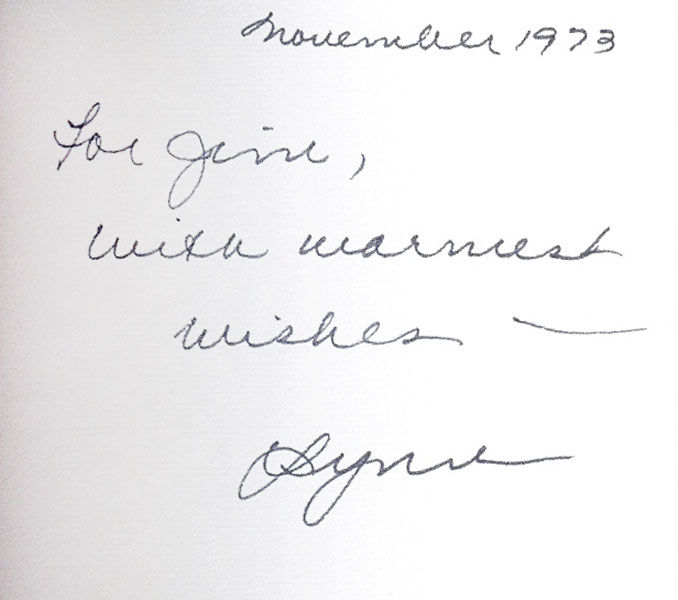 November 1973
For Jim,
With warmest
wishes —
Lynn